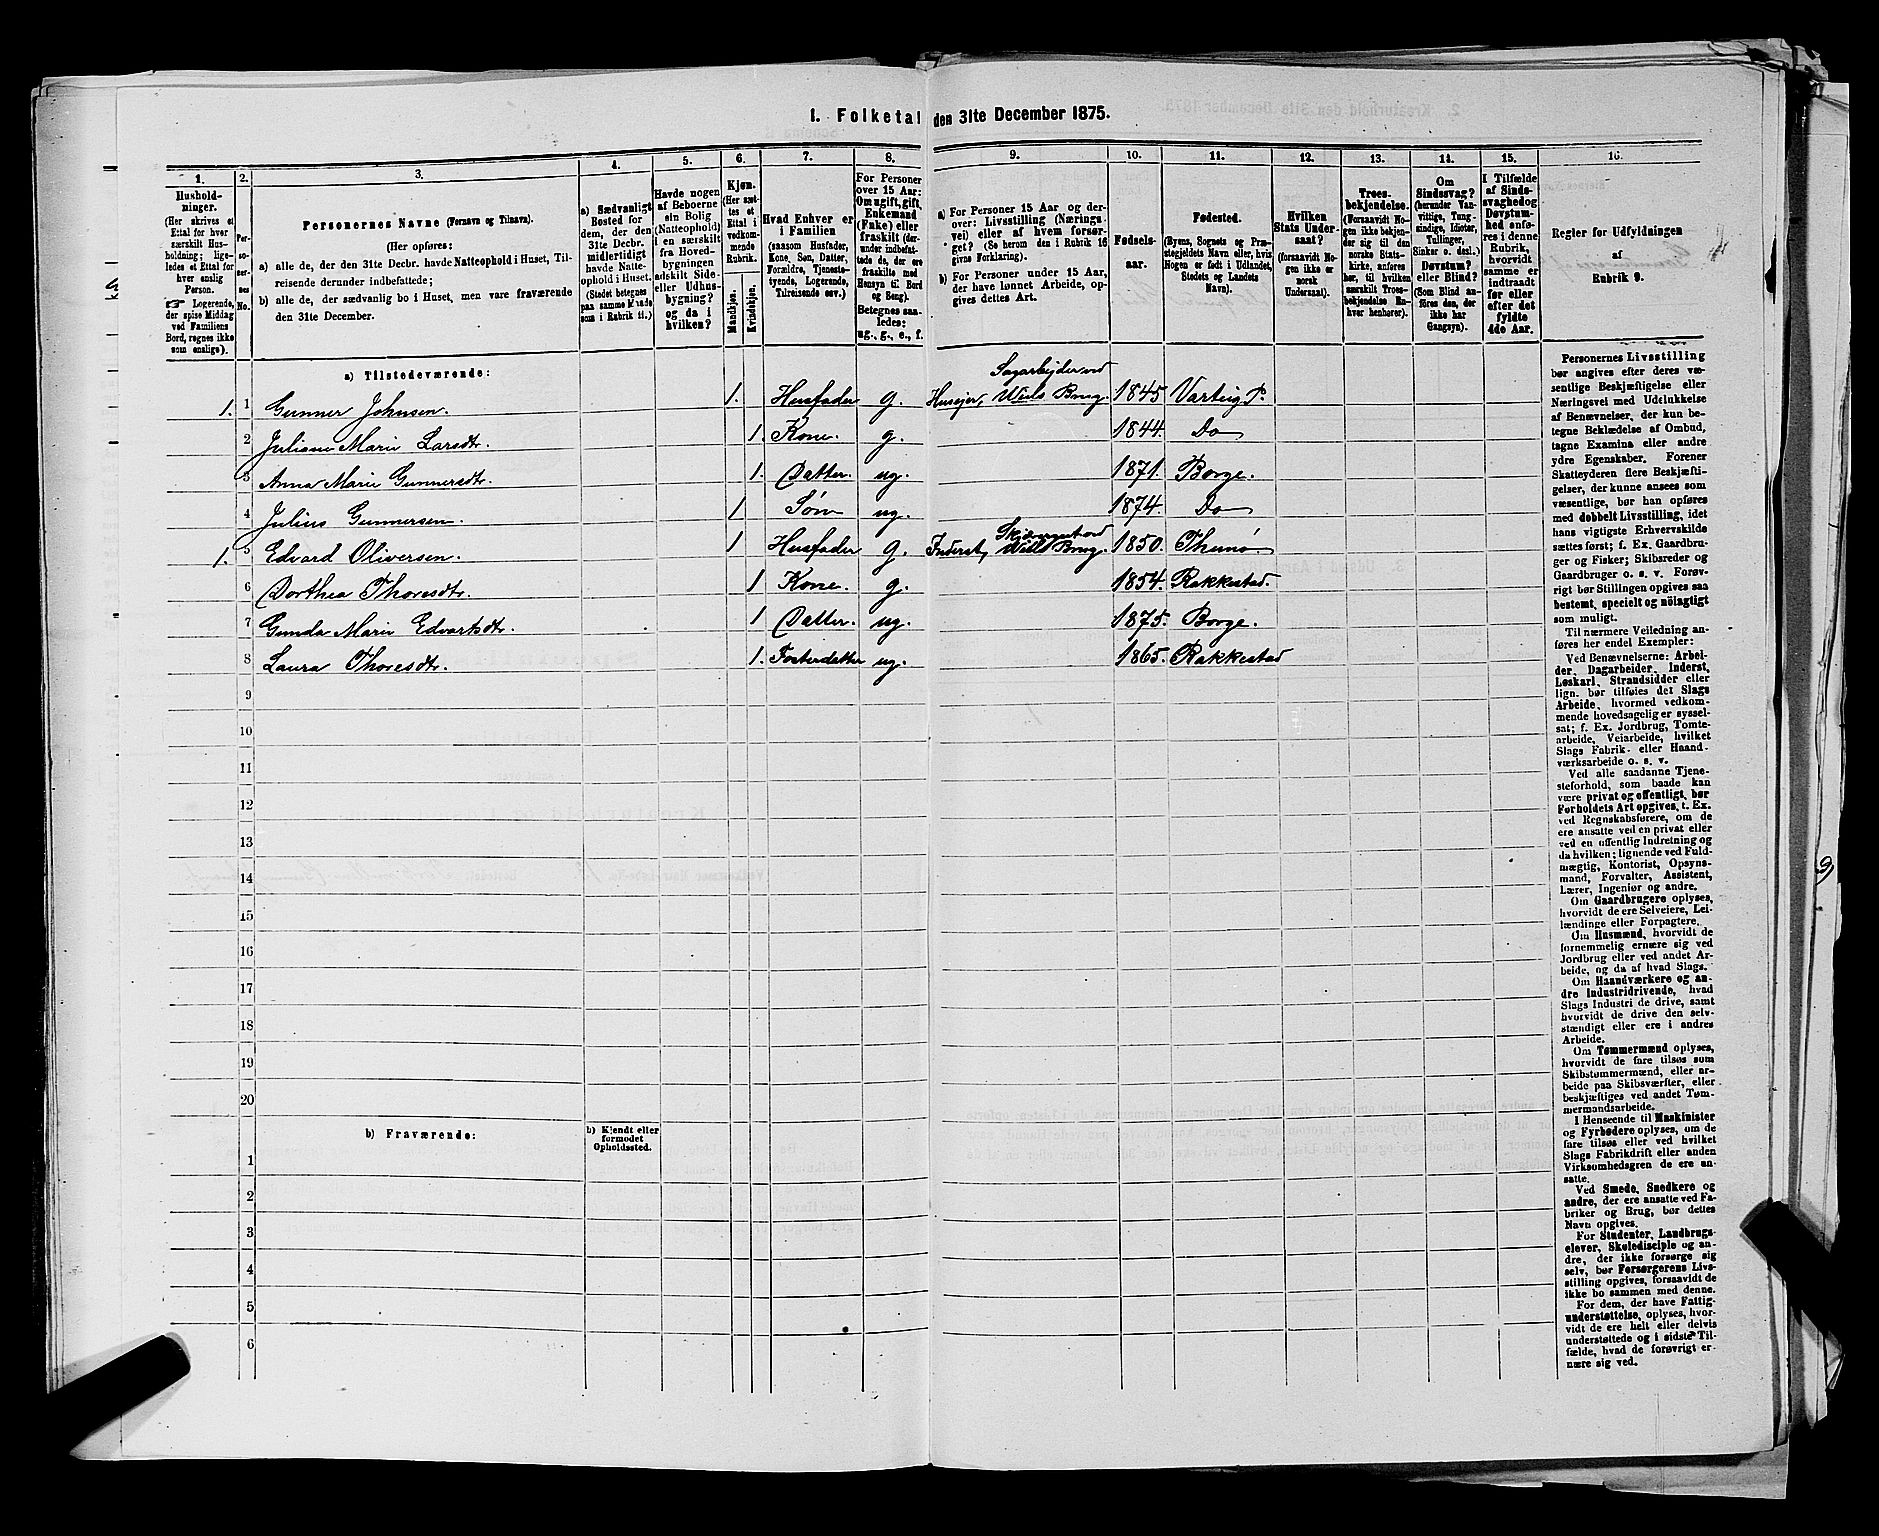 1. Folketal den 31te December 1875.
1. 2. 3. 4. 5. 6. 7. 8. 9. 10. 11. 12. 13. 14. 15. 16.
Hushold-
ninger.
(Her skrives et
Ettal for hver
særskilt Hus-
holdning; lige-
ledes et Ettal for
hver enslig
Person.
☞ Logerende,
der spise Middag
ved Familiens
Bord, regnes ikke
som enslige).
Per-
so-
ner-
nes
No.
Personernes Navne (Fornavn og Tilnavn).
(Her opføres:
a) alle de, der den 31te Decbr. havde Natteophold i Huset, Til-
reisende derunder indbefattede;
b) alle de, der sædvanlig bo i Huset, men vare fraværende
den 31te December.
a) Sædvanligt
Bosted for
dem, der den
31te Decbr.
midlertidigt
havde Natte-
ophold i Huset.
(Stedet betegnes
paa samme Maade
som i Rubrik 11.)
Havde nogen
af Beboerne
sin Bolig
(Natteophold)
i en særskilt
fra Hoved-
bygningen
adskilt Side-
eller Udhus-
bygning?
og da i
hvilken?
Kjøn.
(Her sæt-
tes et
Ettal i
vedkom-
mende
Rubrik.
Mandkjøn.
Kvindekjøn.
Hvad Enhver er
i Familien
(saasom Husfader,
Kone, Søn, Datter,
Forældre, Tjeneste-
tyende, Logerende,
Tilreisende osv.)
For Personer
over 15 Aar:
Om ugift, gift,
Enkemand
(Enke) eller
fraskilt (der-
under indbefat-
tede de, der ere
fraskilte med
Hensyn til Bord
og Seng).
Betegnes saa-
ledes:
ug., g., e., f.
a) For Personer 15 Aar og der-
over: Livsstilling (Nærings-
vei) eller af hvem forsør-
get? (Se herom den i Rubrik 16
givne Forklaring).
b) For Personer under 15 Aar,
der have lønnet Arbeide, op-
gives dettes Art.
Fødsels-
aar.
Fødested.
(Byens, Sognets og Præ-
stegjeldets Navn eller, hvis
Nogen er født i Udlandet,
Stedets og Landets
Navn).
Hvilken
Stats Under-
saat?
(forsaavidt No-
gen ikke er
norsk
Undersaat).
Troes-
bekjendelse.
(Forsaavidt No-
gen ikke bekjen-
der sig til den
norske Stats-
kirke, anføres
her, til hvilken
særskilt Troes-
bekjendelse En-
hver henhører).
Om
Sindssvag?
(herunder Van-
vittige, Tung-
sindige, Idioter,
Tullinger,
Sinker o. desl.)
Døvstum?
eller Blind?
(Som Blind an-
føres den, der
ikke har
Gangsyn).
I Tilfælde
af Sinds-
svaghed og
Døvstum-
hed anfø-
res i denne
Rubrik,
hvorvidt
samme er
indtraadt
før eller
efter det
fyldte
4de Aar.
Regler for Udfyldningen
af
Rubrik 9.
a) Tilstedeværende:
1. 1 Gunner Johnsen. 1. Husfader g. Huseier, Sagarbejder ved Brug. 1845 Varteig P.
2 Juliane Marie Larsdtr. 1. Kone. g. 1844. Do
3 Anna Marie Gunnersdtr. 1. Datter. ug. 1871. Borge.
4 Julius Gunnersen. 1 Søn ug. 1874. Do
1. 5 Edvard Oliversen. 1 Husfader g. Inderst, Brug. 1850. Thunø
6 Dorthea Thoresdtr. 1 Kone. g. 1854. Rakkestad.
7 Gunda Marie Edvartsdtr. 1 Datter. ug. 1875. Borge.
8 Laura Thoresdtr. 1. Fosterdatter ug. 1865. Rakkestad
9
10
11
12
13
14
15
16
17
18
19
20
b) Fraværende:
b) Kjendt eller
formodet
Opholdssted.
1
2
3
4
5
6
Personernes Livsstilling
bør angives efter deres væ-
sentlige Beskjæftigelse eller
Næringsvei med Udelukkelse
af Benævnelser, der kun be-
tegne Beklædelse af Ombud,
tagne Examina eller andre
ydre Egenskaber. Forener
Skatteyderen flere Beskjæfti-
gelser, der kunne ansees som
væsentlige, bør han opføres
med dobbelt Livsstilling, idet
hans vigtigste Erhvervskilde
sættes først; f. Ex. Gaardbru-
ger og Fisker; Skibsreder og
Gaardbruger o. s. v. Forøv-
rigt bør Stillingen opgives saa
bestemt, specielt og nöiagtigt
som muligt.
Til nærmere Veiledning an-
føres her endel Exempler:
Ved Benævnelserne: Arbei-
der, Dagarbeider, Inderst,
Løskarl, Strandsidder eller
lign. bør tilføies det Slags
Arbeide, hvormed vedkom-
mende hovedsagelig er syssel-
sat; f. Ex. Jordbrug, Tomte-
arbeide, Veiarbeide, hvilket
Slags Fabrik- eller Haand-
værksarbeide o. s. v.
Ved alle saadanne Tjene-
steforhold, som baade kan
være privat og offentligt, bør
Forholdets Art opgives, t. Ex.
ved Regnskabsførere, om de
ere ansatte ved en privat eller
ved en offentlig Indretning og
da hvilken; lignende ved Fuld-
mægtig, Kontorist, Opsyns-
mand, Forvalter, Assistent,
Lærer, Ingeniør og andre.
Om Gaardbrugere oplyses,
hvorvidt de ere Selveiere, Lei-
lændinge eller Forpagtere.
Om Husmænd, hvorvidt de
fornemmelig ernære sig ved
Jordbrug eller ved andet Ar-
beide, og da af hvad Slags.
Om Haandværkere og an-
dre Industridrivende, hvad
Slags Industri de drive, samt
hvorvidt de drive den selv-
stændigt eller ere i andres
Arbeide.
Om Tømmermænd oplyses,
hvorvidt de fare tilsøs som
Skibstømmermænd, eller ar-
beide paa Skibsværfter, eller
beskjæftiges ved andet Tøm-
mermandsarbeide.
I Henseende til Maskinister
og Fyrbødere oplyses, om de
fare tilsøs eller ved hvilket
Slags Fabrikdrift eller anden
Virksomhedsgren de ere an-
satte.
Ved Smede, Snedkere og
andre, der ere ansatte ved Fa-
briker og Brug, bør dettes
Navn opgives.
For Studenter, Landbrugs-
elever, Skoledisciple og an-
dre, der ikke forsørge sig
selv, bør Forsørgerens Livs-
stilling opgives, forsaavidt de
ikke bo sammen med denne.
For dem, der have Fattig-
understøttelse, oplyses, hvor-
vidt de ere helt eller delvis
understøttede og i sidste Til-
fælde, hvad de forøvrigt er-
nære sig ved.